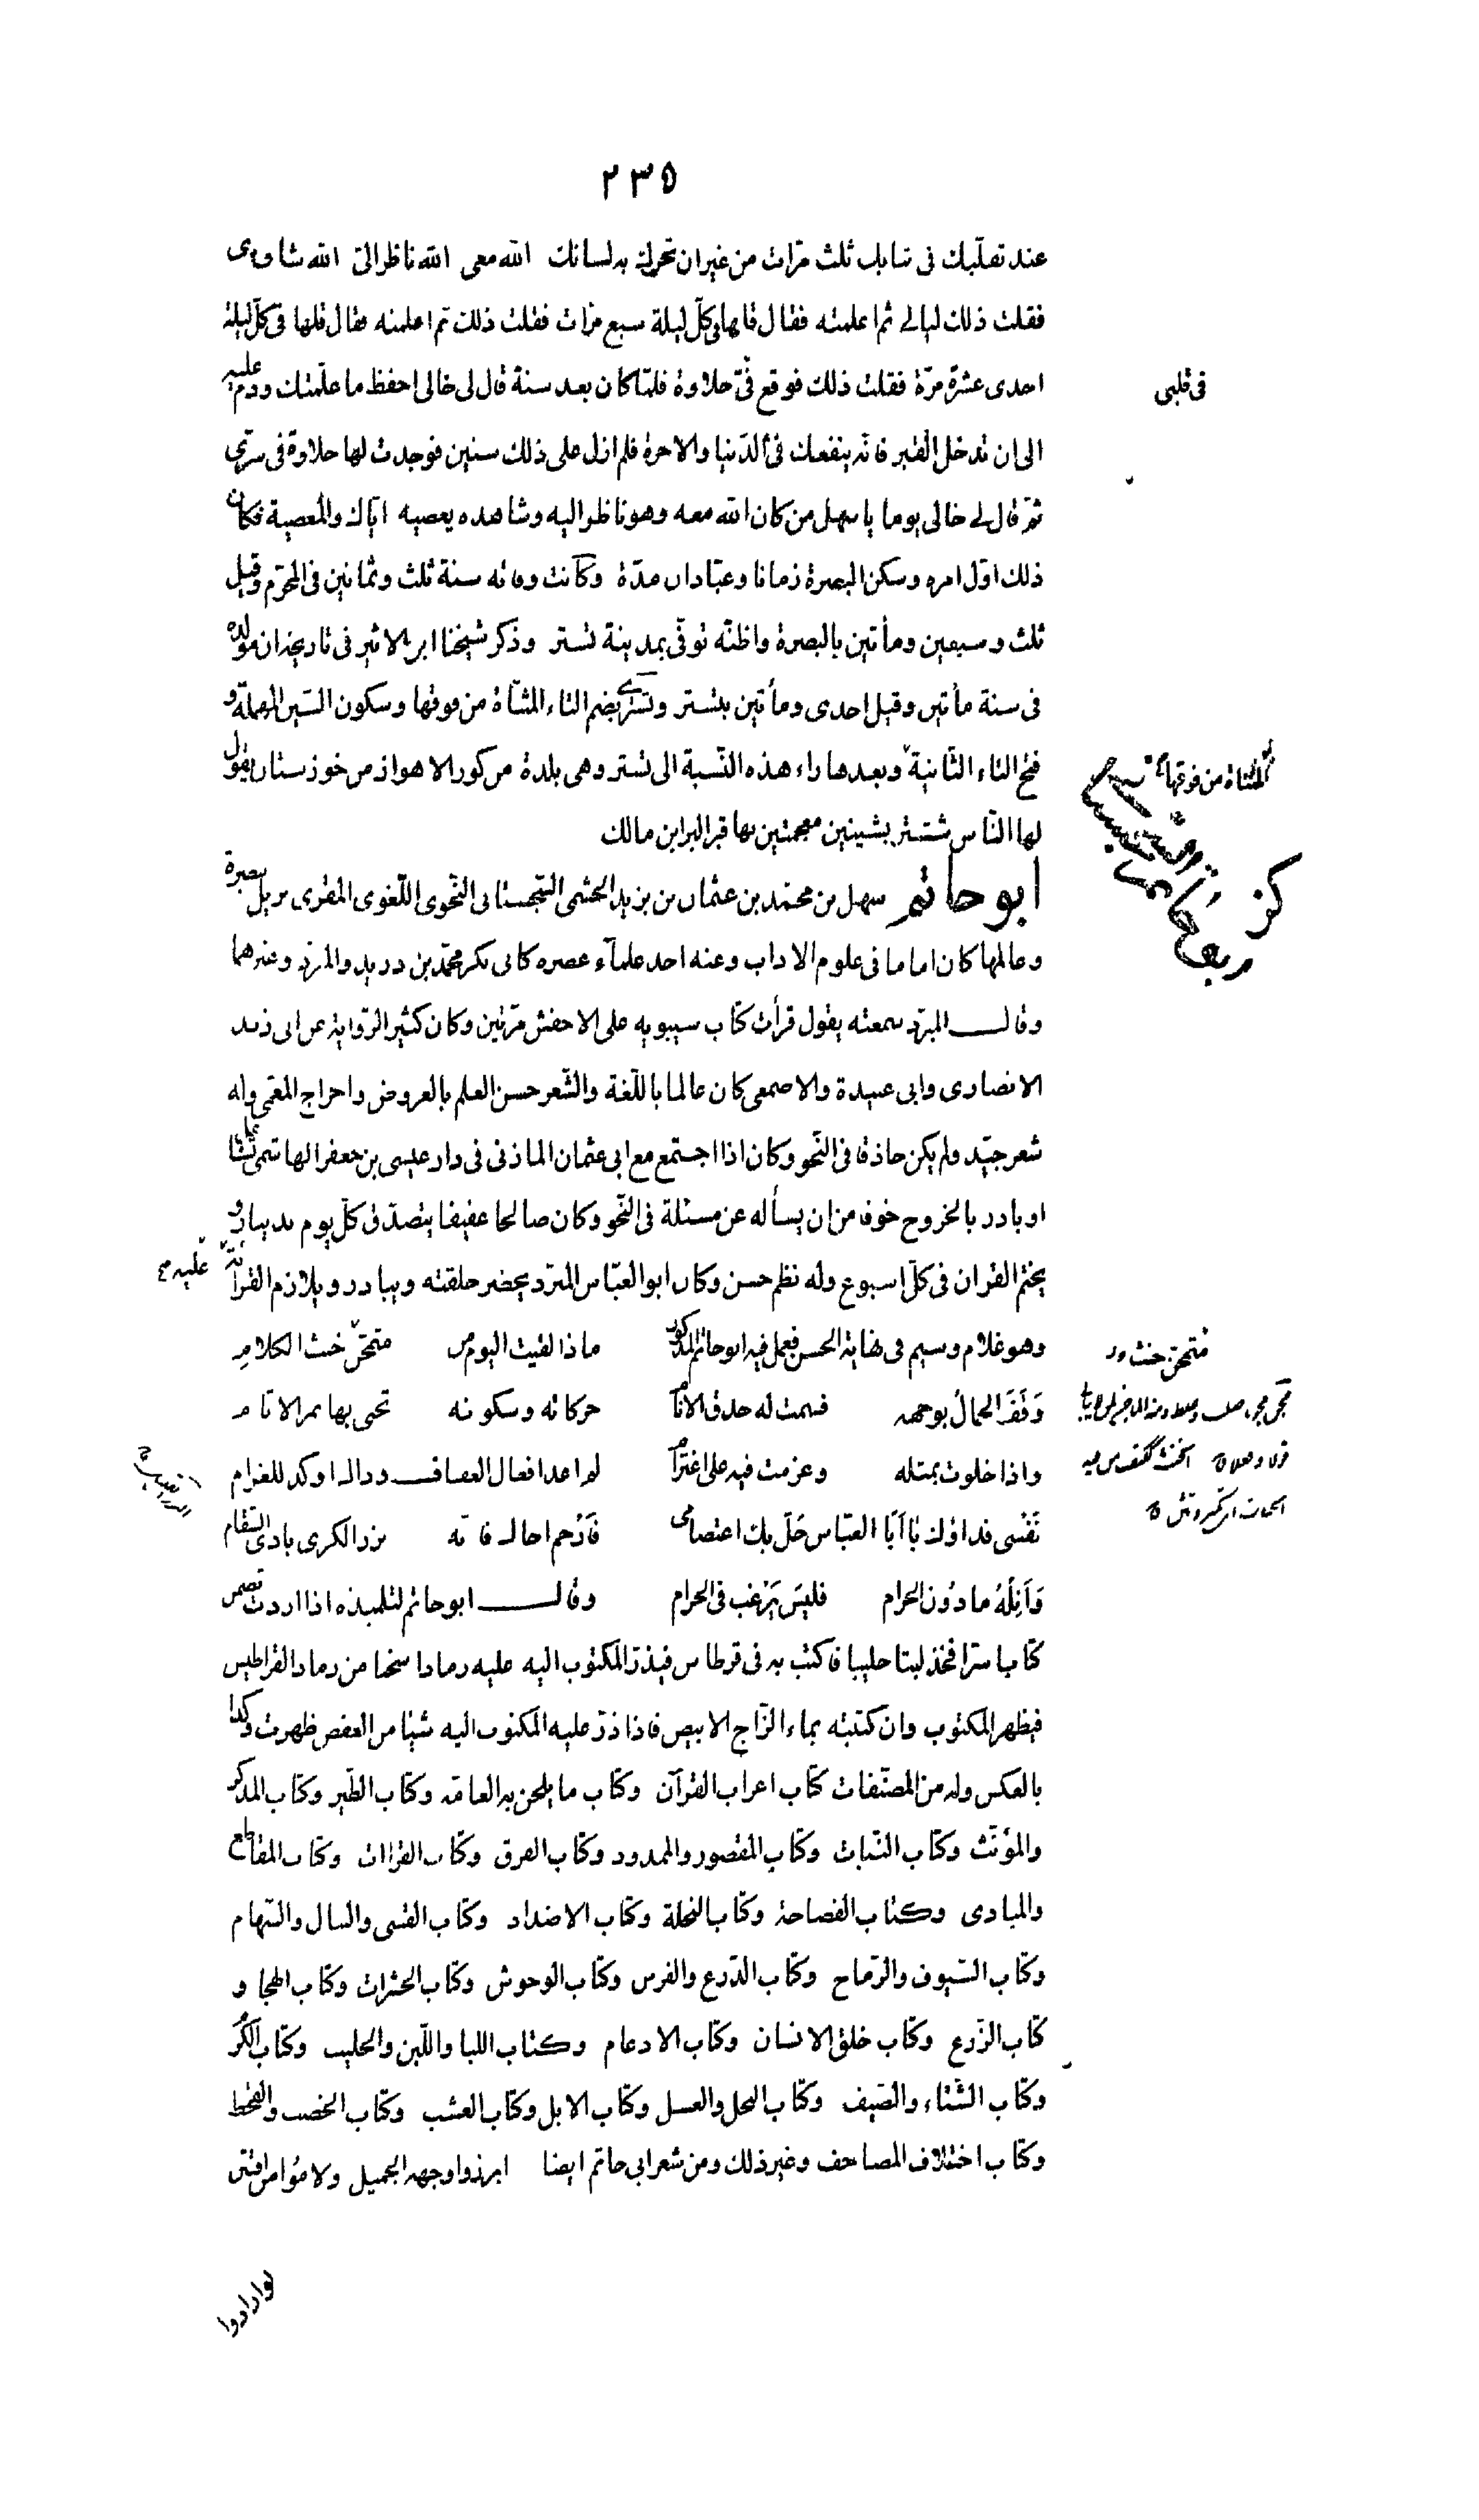 ٢٣٥
عند تقلّبك فى ثيابك ثلث مرّات من غير ان تحرك به لسانك الله معى الله ناظر الىّ الله شاهدى
فقلت ذلك ليالى ثم اعلمته فقال قلها فى كلّ ليلة سبع مرّات فقلت ذلك ثم اعلمته فقال قلها فى كلّ ليلة
احدى عشرة مرّة فقلت ذلك فوقع فىّ حلاوة فلمّا كان بعد سنة قال لى خالى احفظ ما علّمتك ودم عليه
فى قلبى
الى ان تدخل القبر فانّه ينفعك فى الدّنيا والاخرة فلم ازل على ذلك سنين فوجدت لها حلاوة فى سرّى
ثمّ قال لى خالى يوما يا سهل من كان الله معه وهو ناظر اليه وشاهده يعصيه ايّاك والمعصية فكان
ذلك اوّل امره وسكن البصرة زمانا وعبّادان مدّة وكانت وفاته سنة ثلث وثمانين فى المحرّم وقيل
ثلث وسبعين ومأتين بالبصرة واظنّه توفّى بمدينة تستر وذكر شيخنا ابن الاثير فى تاريخه ان مولده
فى سنة مأتين وقيل احدى ومأتين بتستر وتسترى بضم التاء المثنّاة من فوقها وسكون السّين المهملة و
فتح التاء الثّانية وبعدها راء هذه النّسبة الى تستر وهى بلدة من كور الاهواز من خوزستان يقول
المثنّاة من فوقها
لها النّاس شتشتر بشينين معجمتين بها قبر البرا بن مالك
ابو حاتم سهل بن محمّد بن عثمان بن يزيد الجشمى السّجستانى النّحوى اللّغوى المقرى نزيل بصرة
وعالمها كان اماما فى علوم الاداب وعنه احد علمآء عصره كابى بكر محمّد بن دريد والمبرّد وغيرهما
وقال المبرّد سمعته يقول قرأت كتاب سيبويه على الاخفش مرّتين وكان كثير الرّواية عن ابى زيد
الانصارى وابى عبيدة والاصمعى كان عالما باللّغة والشّعر حسن العلم بالعروض واخراج المعمّى وله
شعر جيّد ولم يكن حاذقا فى النّحو وكان اذا اجتمع مع ابى عثمان المازنى فى دار عيسى بن جعفر الهاشمى تشاغل
او بادر بالخروج خوفا من ان يسأله عن مسئلة فى النّحو وكان صالحا عفيفا يتصدّق كلّ يوم بدينار و
يختم القران فى كلّ اسبوع وله نظم حسن وكان ابو العبّاس المبرّد يحضر حلقته ويبادر ويلازم القرائة
عليه
وهو غلام وسيم فى نهاية الحسن فعمل فيه ابو حاتم المذكور ماذا لقيت اليوم من متمجّن خنث الكلام
وَقَفَ الجمال بوجهه فسمت له حدق الانام حركاته وسكونه تجنى بها ثمر الاثام
واذا خلوت بمثله وعزمت فيه على اعتزام لم اعد افعال العفاف وذاك اوكد للغرام
نَفْسى فداؤك يا اَبَا العبّاس حَلّ بك اعتصامى فَارْحم اخاك فانّه نزر الكرى بادى السّقام
وَاَنِلْهُ مادُون الحرام فليسَ يَرْغب فى الحرام وقال ابو حاتم لتلميذه اذا اردت تضمن
كتابا سرّا فخذ لبنا حليبا فاكتب به فى قرطاس فيذرّ المكتوب اليه عليه رمادا سخنا من رماد القراطيس
فيظهر المكتوب وان كتبته بماء الزّاج الابيض فاذا ذرّ عليه المكتوب اليه شيئا من العفص ظهرت وكذا
بالعكس وله من المصنّفات كتاب اعراب القرآن وكتاب ما يلحن به العامّه وكتاب الطّير وكتاب المذكر
والمؤنّث وكتاب النّبات وكتاب المقصور والممدود وكتاب الفرق وكتاب القراات وكتاب المقاطع
والمبادى وكتاب الفصاحة وكتاب النحلة وكتاب الاضداد وكتاب القسى والنبال والسّهام
وكتاب السّيوف والرّماح وكتاب الدّرع والفرس وكتاب الوحوش وكتاب الحشرات وكتاب الهجا و
كتاب الزّرع وكتاب خلق الانسان وكتاب الادغام وكتاب اللبا واللّبن والحليب وكتاب الكرم
وكتاب الشّتاء والصّيف وكتاب النحل والعسل وكتاب الابل وكتاب العشب وكتاب الخصب والقحط
وكتاب اختلاف المصاحف وغير ذلك ومن شعر ابى حاتم ايضا ابرزوا وجهه الجميل ولاموا من افتتن
لوارادوا